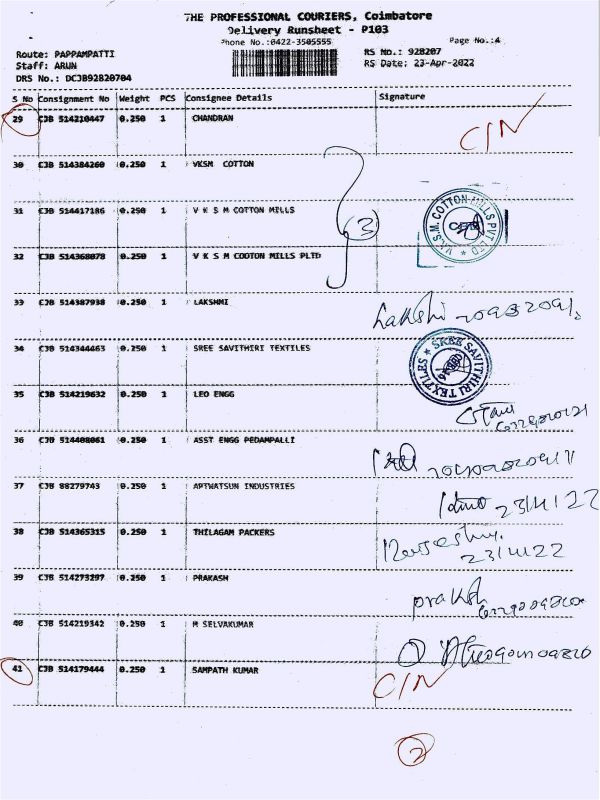 THE PROFESSIONAL COURIERS, Coimbatore
Delivery Runsheet - P103
Phone No.:0422-3505555
Page No.:4
Route: PAPPAMPATTI
RS No.: 928207
Staff: ARUN
RS Date: 23-Apr-2022
DRS No.: DCJB92820704
S No Consignment No Weight PCS Consignee Details Signature
29 CJB 514210447 0.250 1 CHANDRAN C/N
30 CJB 514384260 0.250 1 VKSM COTTON
31 CJB 514417186 0.250 1 V K S M COTTON MILLS
3
V.K.S.M. COTTON MILLS PVT LTD
32 CJB 514368078 0.250 1 V K S M COOTON MILLS PLTD
33 CJB 514387938 0.250 1 LAKSHMI
Lakshi
34 CJB 514344463 0.250 1 SREE SAVITHIRI TEXTILES
SREE SAVITHIRI TEXTILES
35 CJB 514219632 0.250 1 LEO ENGG
36 CJB 514408061 0.250 1 ASST ENGG PEDAMPALLI
37 CJB 88279743 0.250 1 APTWATSUN INDUSTRIES
23/4/22
38 CJB 514365315 0.250 1 THILAGAM PACKERS
23/4/22
39 CJB 514273297 0.250 1 PRAKASH
prakash
40 CJB 514219342 0.250 1 M SELVAKUMAR
41 CJB 514179444 0.250 1 SAMPATH KUMAR
C/N
2